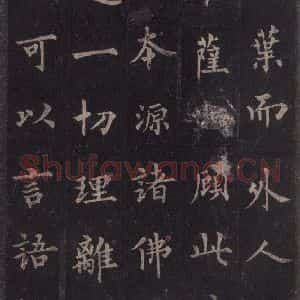 葉而外人
薩顧此
本源諸佛
一切理離
可以言語
Shufawang.CN